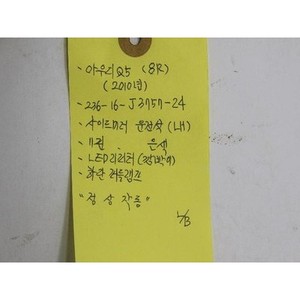 - 아우디 Q5 (8R)
(2010년)
- 236-16-J3757-24
- 사이드미러 운전석 (LH)
- 11핀 . 은색
- LED리피터 (깜박이)
- 하단 퍼들램프
"정상작동"